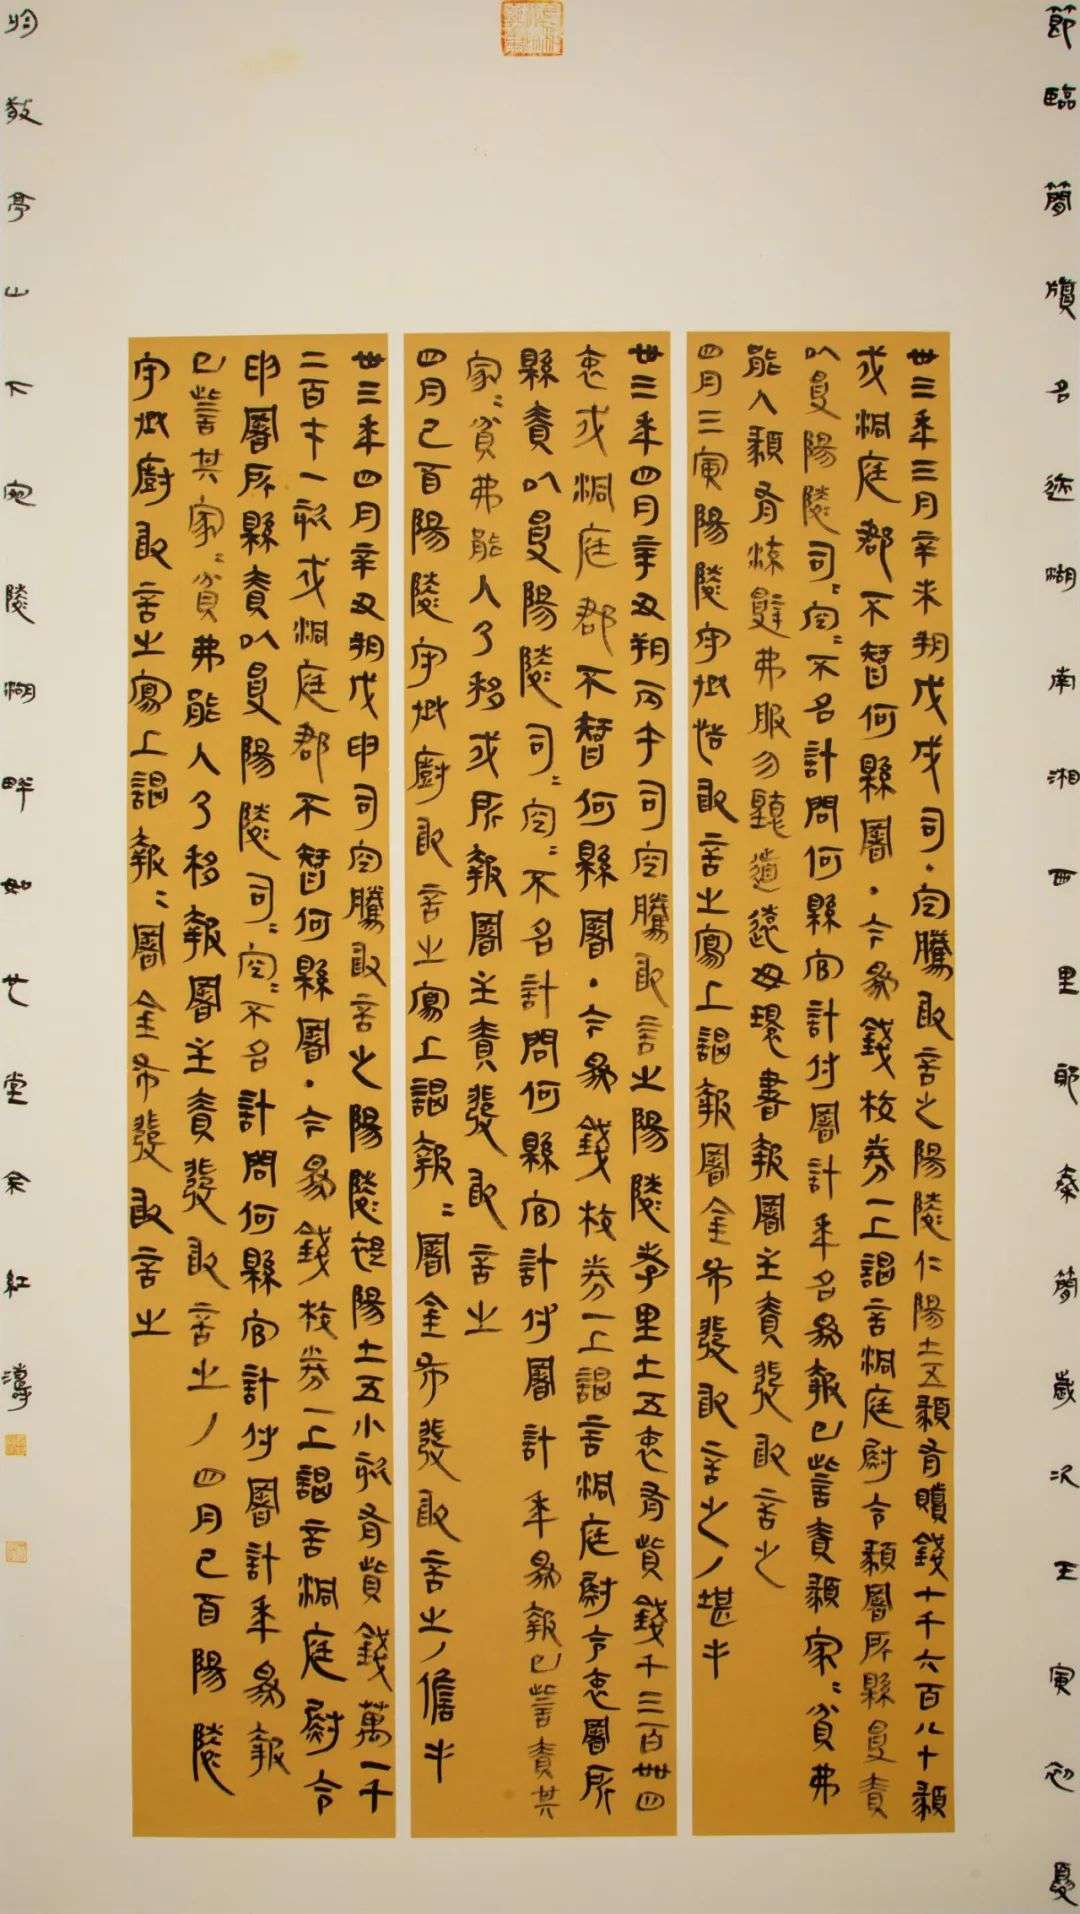 節臨簡牘名迹湖南湘西里耶秦簡歲次壬寅初夏
卅三年三月辛未朔戊戌司·空騰敢言之陽陵仁陽士五顤有贖錢十千六百八十顤
戍洞庭郡不智何縣署·今為錢校券一上謁言洞庭尉令顤署所縣受責
以受陽陵司=空=不名計問何縣官計付署計年名為報已訾責顤家=貧弗
能入顤有流辭弗服勿聽道遠毋環書報署主責發敢言之
四月壬寅陽陵守丞恬敢言之寫上謁報署金布發敢言之/堪手
卅三年四月辛丑朔丙午司空騰敢言之陽陵孝里士五衷有貲錢千三百卌四
衷戍洞庭郡不智何縣署·今為錢校券一上謁言洞庭尉令衷署所
縣責以受陽陵司=空=不名計問何縣官計付署計年為報已訾責其
家=貧弗能入乃移戍所報署主責發敢言之
四月己酉陽陵守丞廚敢言之寫上謁報=署金布發敢言之/儋手
卅三年四月辛丑朔戊申司空騰敢言之陽陵褆陽士五小欬有貲錢萬一千
二百十一欬戍洞庭郡不智何縣署·今為錢校券一上謁言洞庭尉令
申署所縣責以受陽陵司=空=不名計問何縣官計付署計年為報
已訾其家=貧弗能入乃移報署主責發敢言之/四月己酉陽陵
守丞廚敢言之寫上謁報=署金布發敢言之
於敬亭山下宛陵湖畔如也堂余紅濤